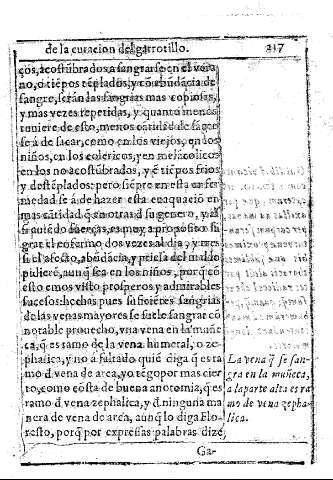 de la curacion del garrotillo. 217
ços, acostũbrados a sangrarse en el vera
no, o tiẽpos tẽplados, y cõ abũdãcia de
sangre, serãn las sangrias mas copiosas,
y mas vezes repetidas, y quanto menos
tuuiere de esto, menos cãtidad de sãgre
se à de sacar, como en los viejos, en los
niños, en los colericos, y en melãcolicos
en los no acostũbrados, y ẽ tiẽpos frios
y destẽplados: pero siẽpre en esta enfer
medad se à de hazer esta euaquaciõ en
mas cãtidad q̃ en otras d̃ su genero, y assi
si auiẽdo fuerças, es muy a proposito sã
grar el enfermo dos vezes al dia, y tres
si el afecto, abũdãcia, y priesa del mal lo
pidierẽ, aunq̃ sea en los niños, porq̃ cõ
esto emos visto prosperos y admirables
sucesos: hechas pues suficiẽtes sangrias
de las venas mayores se suele sangrar cõ
notable prouecho, vna vena en la muñe
ca, q̃ es ramo de la vena humeral, o ze-
phalica, y no à faltado quiẽ diga q̃ es ra
mo d̃ vena de arca, yo tẽgo por mas cier
to, como cõsta de buena anotomia, q̃ es
ramo d̃ vena zephalica, y d̃ ninguna ma
nera de vena de arca, aũnq̃ lo diga Flo-
resto, porq̃ por expresas palabras dize
Ga-
La vena q̃ se san-
gra en la muñeca,
a la parte alta es ra
mo de vena zepha-
lica.